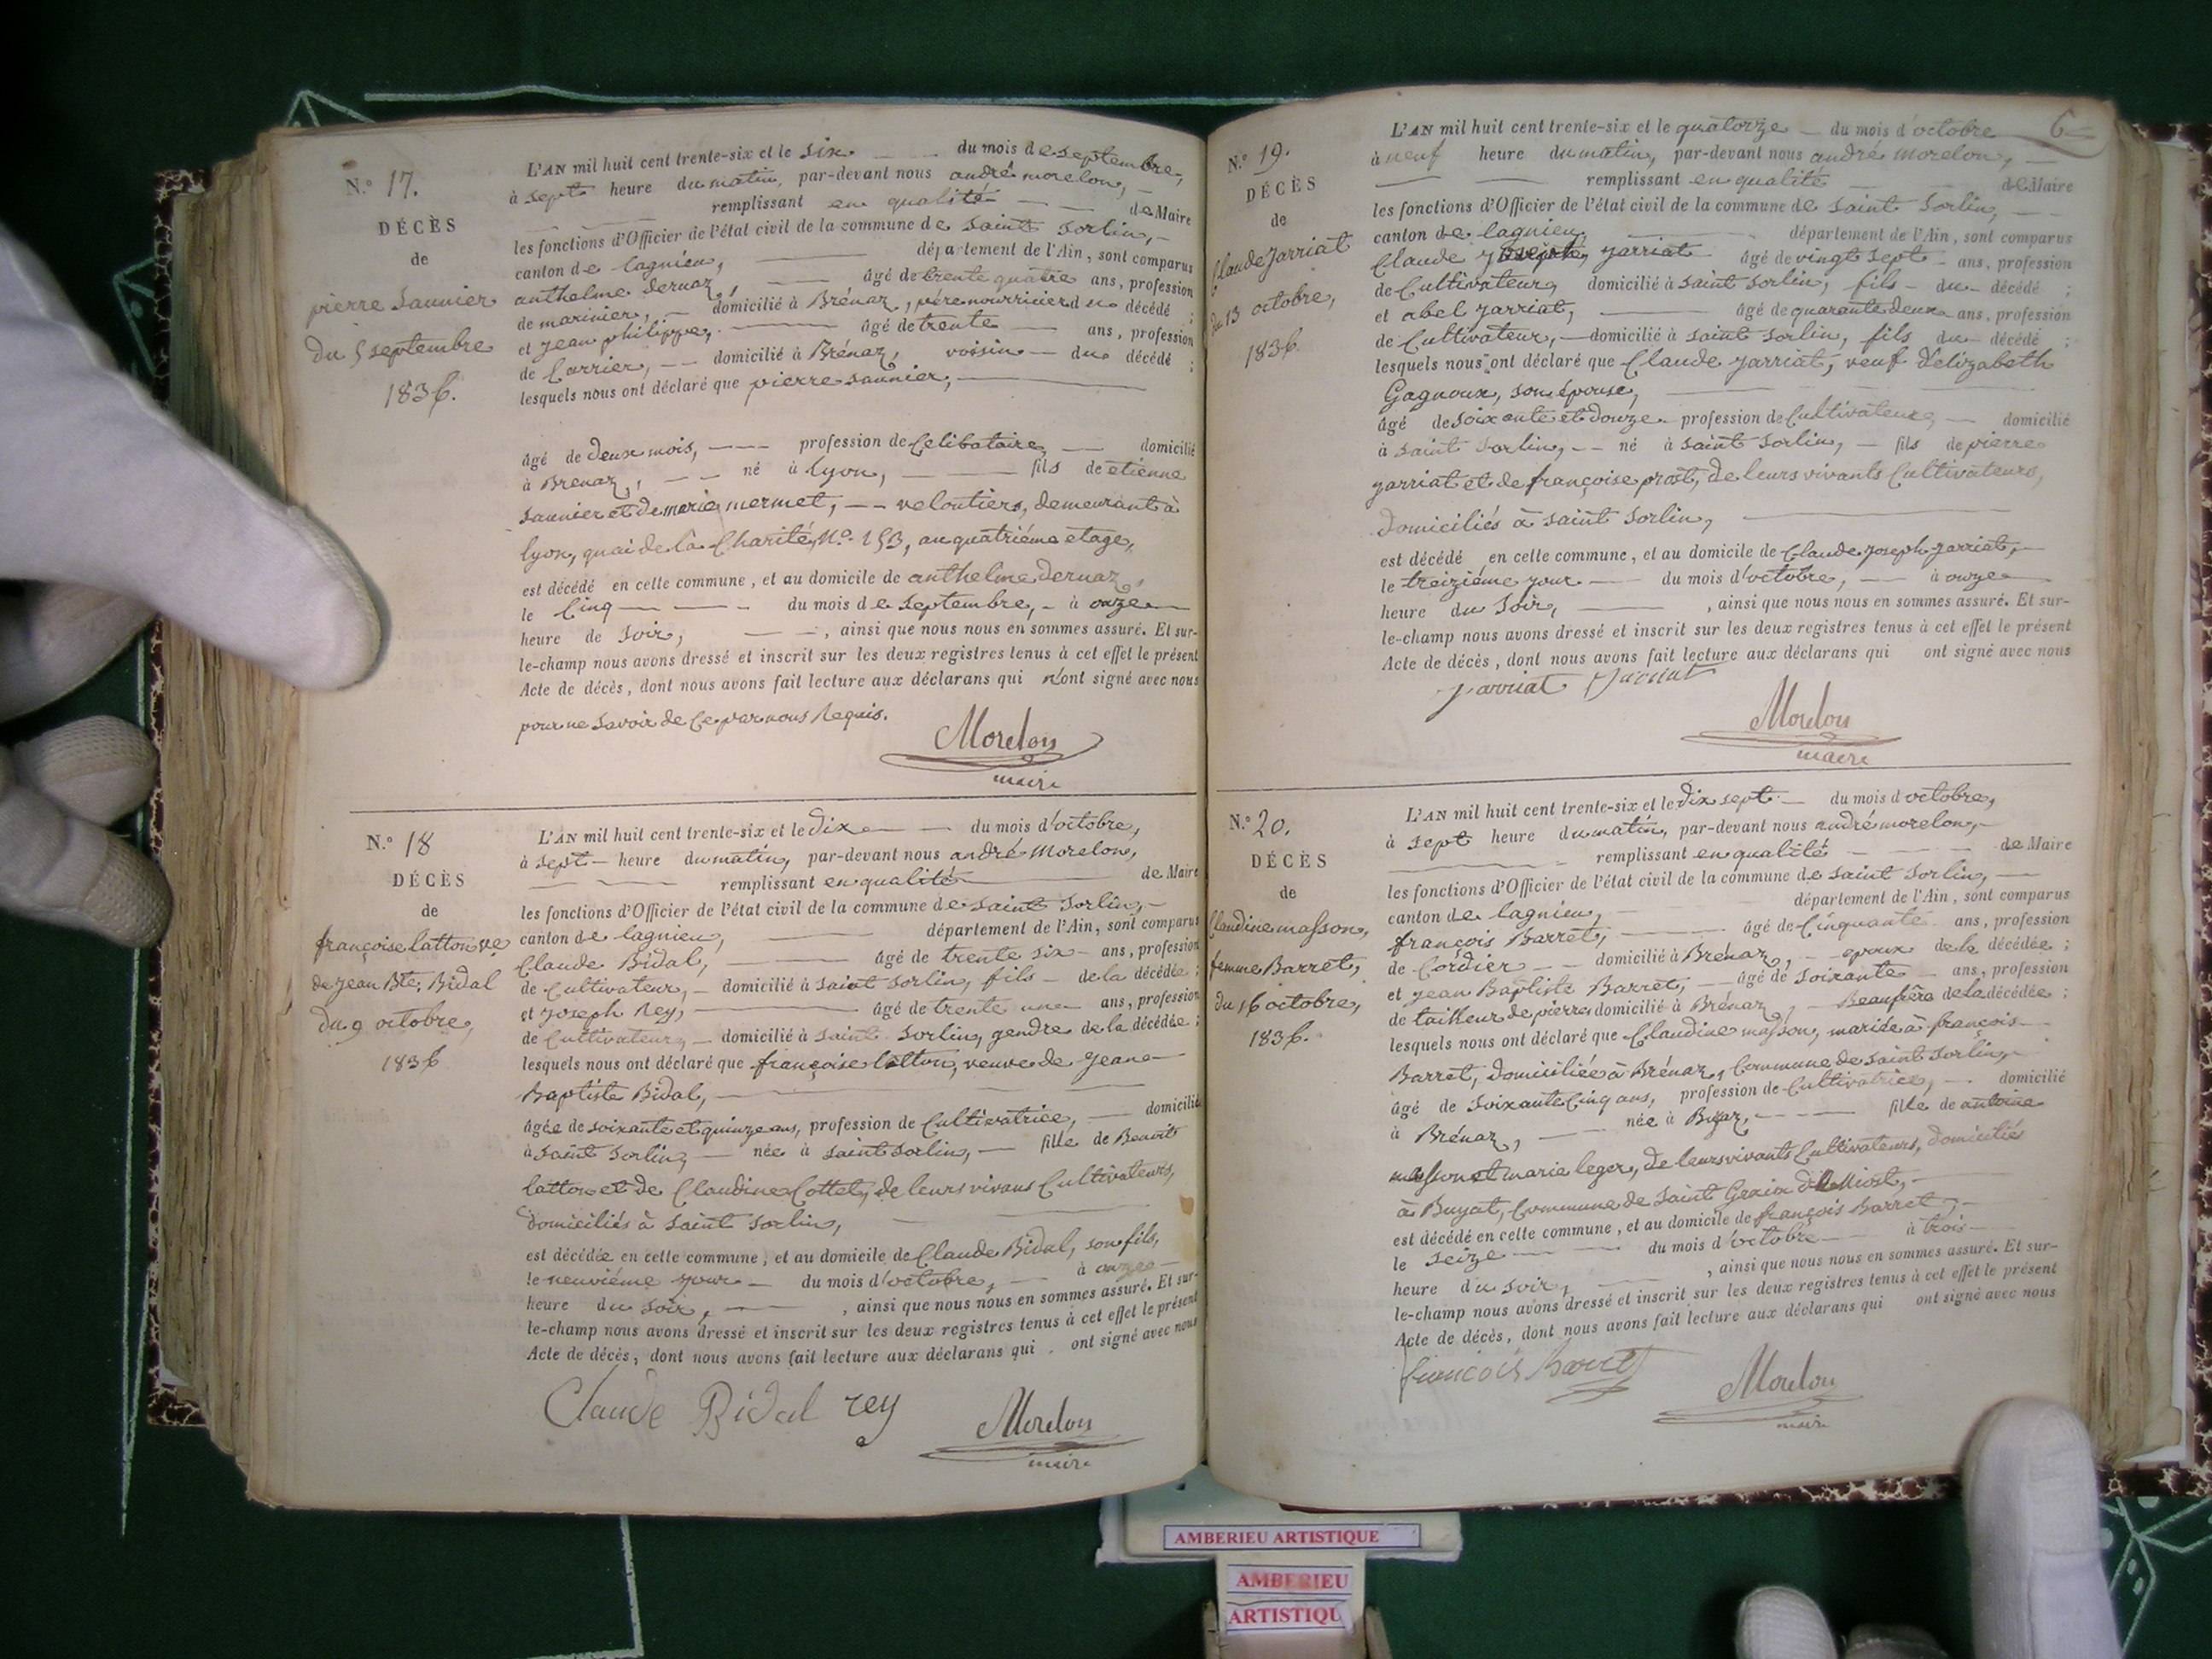 N.º 17.
DÉCÈS
de
pierre Saunier
du 5 septembre
1836.
L'AN mil huit cent trente-six et le six du mois de septembre,
à sept heure du matin, par-devant nous andré morelon,
remplissant en qualité de Maire
les fonctions d'Officier de l'état civil de la commune de saint sorlin,
canton de lagnieu, département de l'Ain, sont comparus
anthelme dernaz, âgé de trente quatre ans, profession
de marinier, domicilié à Brénaz, père nourricier du décédé ;
et jean philippe, âgé de trente ans, profession
de Carrier, domicilié à Brénaz, voisin du décédé ;
lesquels nous ont déclaré que pierre saunier,
âgé de deux mois, profession de Celibataire, domicilié
à Brenaz, né à lyon, fils de etienne
saunier et de marie mermet, veloutiers, demeurant à
lyon, quai de la Charité, N.º 153, au quatriéme etage,
est décédé en celle commune, et au domicile de anthelme dernaz,
le Cinq du mois de septembre, à onze
heure de soir, , ainsi que nous nous en sommes assuré. Et sur-
le-champ nous avons dressé et inscrit sur les deux registres tenus à cet effet le présent
Acte de décès, dont nous avons fait lecture aux déclarans qui n'ont signé avec nous
pour ne savoir de Ce par nous Requis.
Morelon
maire
N.º 18
DÉCÈS
de
françoise latton ve
de jean Bte. Bidal
du 9 octobre,
1836
L'AN mil huit cent trente-six et le dix du mois d'octobre,
à sept heure du matin, par-devant nous andré morelon,
remplissant en qualité de Maire
les fonctions d'Officier de l'état civil de la commune de saint sorlin,
canton de lagnieu, département de l'Ain, sont comparus
Claude Bidal, âgé de trente six ans, profession
de Cultivateur, domicilié à saint sorlin, fils de la décédée ;
et joseph Rey, âgé de trente une ans, profession
de Cultivateur, domicilié à saint sorlin, gendre de la décédée ;
lesquels nous ont déclaré que françoise latton, veuve de jean
Baptiste Bidal,
âgée de soixante et quinze ans, profession de Cultivatrice, domicilié
à saint sorlin, née à saint sorlin, fille de Benoit
latton et de Claudine Cottet, de leurs vivans Cultivateurs,
domiciliés à saint sorlin,
est décédée en celle commune, et au domicile de Claude Bidal, son fils,
le neuviéme jour du mois d'octobre, à onze
heure du soir, , ainsi que nous nous en sommes assuré. Et sur-
le-champ nous avons dressé et inscrit sur les deux registres tenus à cet effet le présent
Acte de décès, dont nous avons fait lecture aux déclarans qui ont signé avec nous
Claude Bidal rey
Morelon
maire
6
N.º 19.
DÉCÈS
de
Claude Jarriat
du 13 octobre,
1836.
L'AN mil huit cent trente-six et le quatorze du mois d'octobre
à neuf heure du matin, par-devant nous andré morelon,
remplissant en qualité de Maire
les fonctions d'Officier de l'état civil de la commune de saint sorlin,
canton de lagnieu, département de l'Ain, sont comparus
Claude joseph jarriat âgé de vingt sept ans, profession
de Cultivateur, domicilié à saint sorlin, fils du décédé ;
et abel jarriat, âgé de quarante deux ans, profession
de Cultivateur, domicilié à saint sorlin, fils du décédé ;
lesquels nous ont déclaré que Claude jarriat, veuf d'elizabeth
Gagnoux, son épouse,
âgé de soixante et douze profession de Cultivateur, domicilié
à saint sorlin, né à saint sorlin, fils de pierre
jarriat et de françoise prost, de leurs vivants Cultivateurs,
domiciliés à saint sorlin,
est décédé en celle commune, et au domicile de Claude joseph jarriat,
le treiziéme jour du mois d'octobre, à onze
heure du soir, , ainsi que nous nous en sommes assuré. Et sur-
le-champ nous avons dressé et inscrit sur les deux registres tenus à cet effet le présent
Acte de décès, dont nous avons fait lecture aux déclarans qui ont signé avec nous
jarriat Jarriat
Morelon
maire
N.º 20.
DÉCÈS
de
Claudine masson,
femme Barret,
du 16 octobre,
1836.
L'AN mil huit cent trente-six et le dix sept du mois d'octobre,
à sept heure du matin, par-devant nous andré morelon,
remplissant en qualité de Maire
les fonctions d'Officier de l'état civil de la commune de saint sorlin,
canton de lagnieu, département de l'Ain, sont comparus
françois Barret, âgé de Cinquante ans, profession
de Cordier domicilié à Brénaz, epoux de la décédée ;
et jean Baptiste Barret, âgé de soixante ans, profession
de tailleur de pierre domicilié à Brénaz, Beaufrère de la décédée ;
lesquels nous ont déclaré que Claudine masson, mariée à françois
Barret, domiciliée à Brénaz, Commune de saint sorlin,
âgé de soixante Cinq ans, profession de Cultivatrice, domicilié
à Brénaz, née à Buyaz, fille de antoine
masson et marie leger, de leurs vivants Cultivateurs, domiciliés
à Buyat, Commune de saint
est décédée en celle commune, et au domicile de françois Barret,
le seize du mois d'octobre à trois
heure du soir, , ainsi que nous nous en sommes assuré. Et sur-
le-champ nous avons dressé et inscrit sur les deux registres tenus à cet effet le présent
Acte de décès, dont nous avons fait lecture aux déclarans qui ont signé avec nous
françois Barret
Morelon
maire
AMBERIEU ARTISTIQUE
AMBERIEU
ARTISTIQU